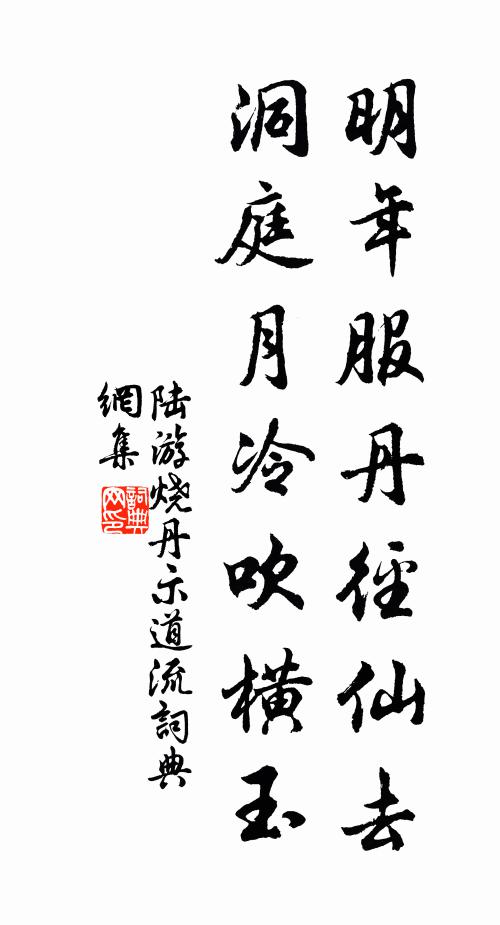 明年服丹径仙去
洞庭月冷吹横玉
陆游烧丹示道流词典
網集
詞典网印